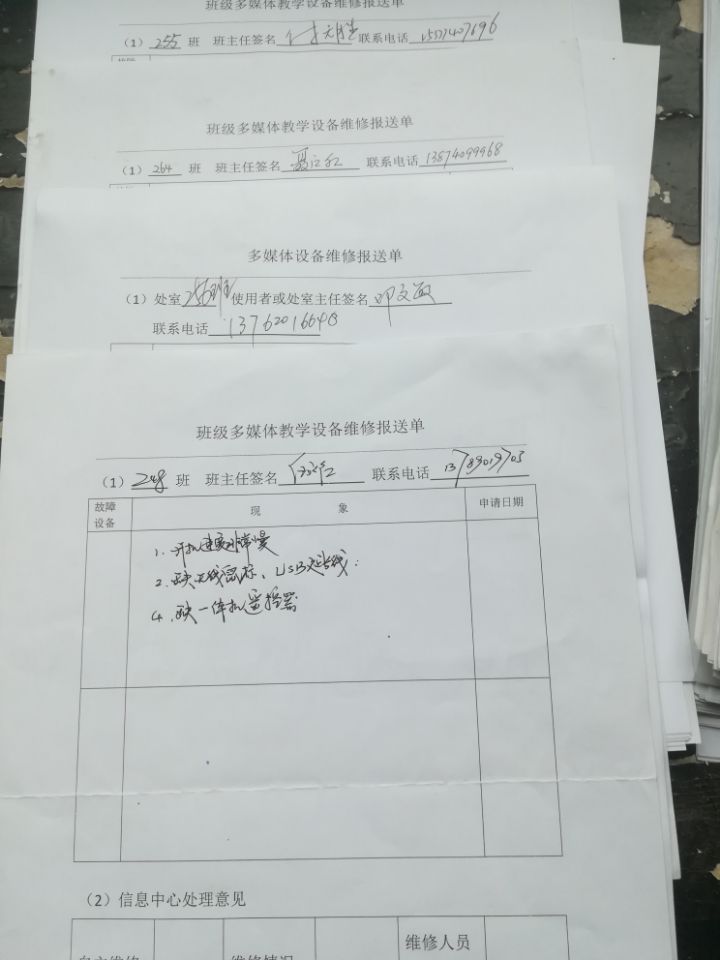 班级多媒体教学设备维修报送单
（1）255 班 班主任签名 联系电话
班级多媒体教学设备维修报送单
（1）264 班 班主任签名 联系电话13874099968
多媒体设备维修报送单
（1）处室256班使用者或处室主任签名邓文敏
联系电话13762016648
班级多媒体教学设备维修报送单
（1）248 班 班主任签名 联系电话13789019703
故障设备 现 象 申请日期
1. 开机速度非常慢
2. 缺无线鼠标、USB延长线.
4. 缺一体机遥控器
（2）信息中心处理意见
维修人员
自主维修 维修情况